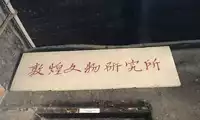 敦煌文物研究所